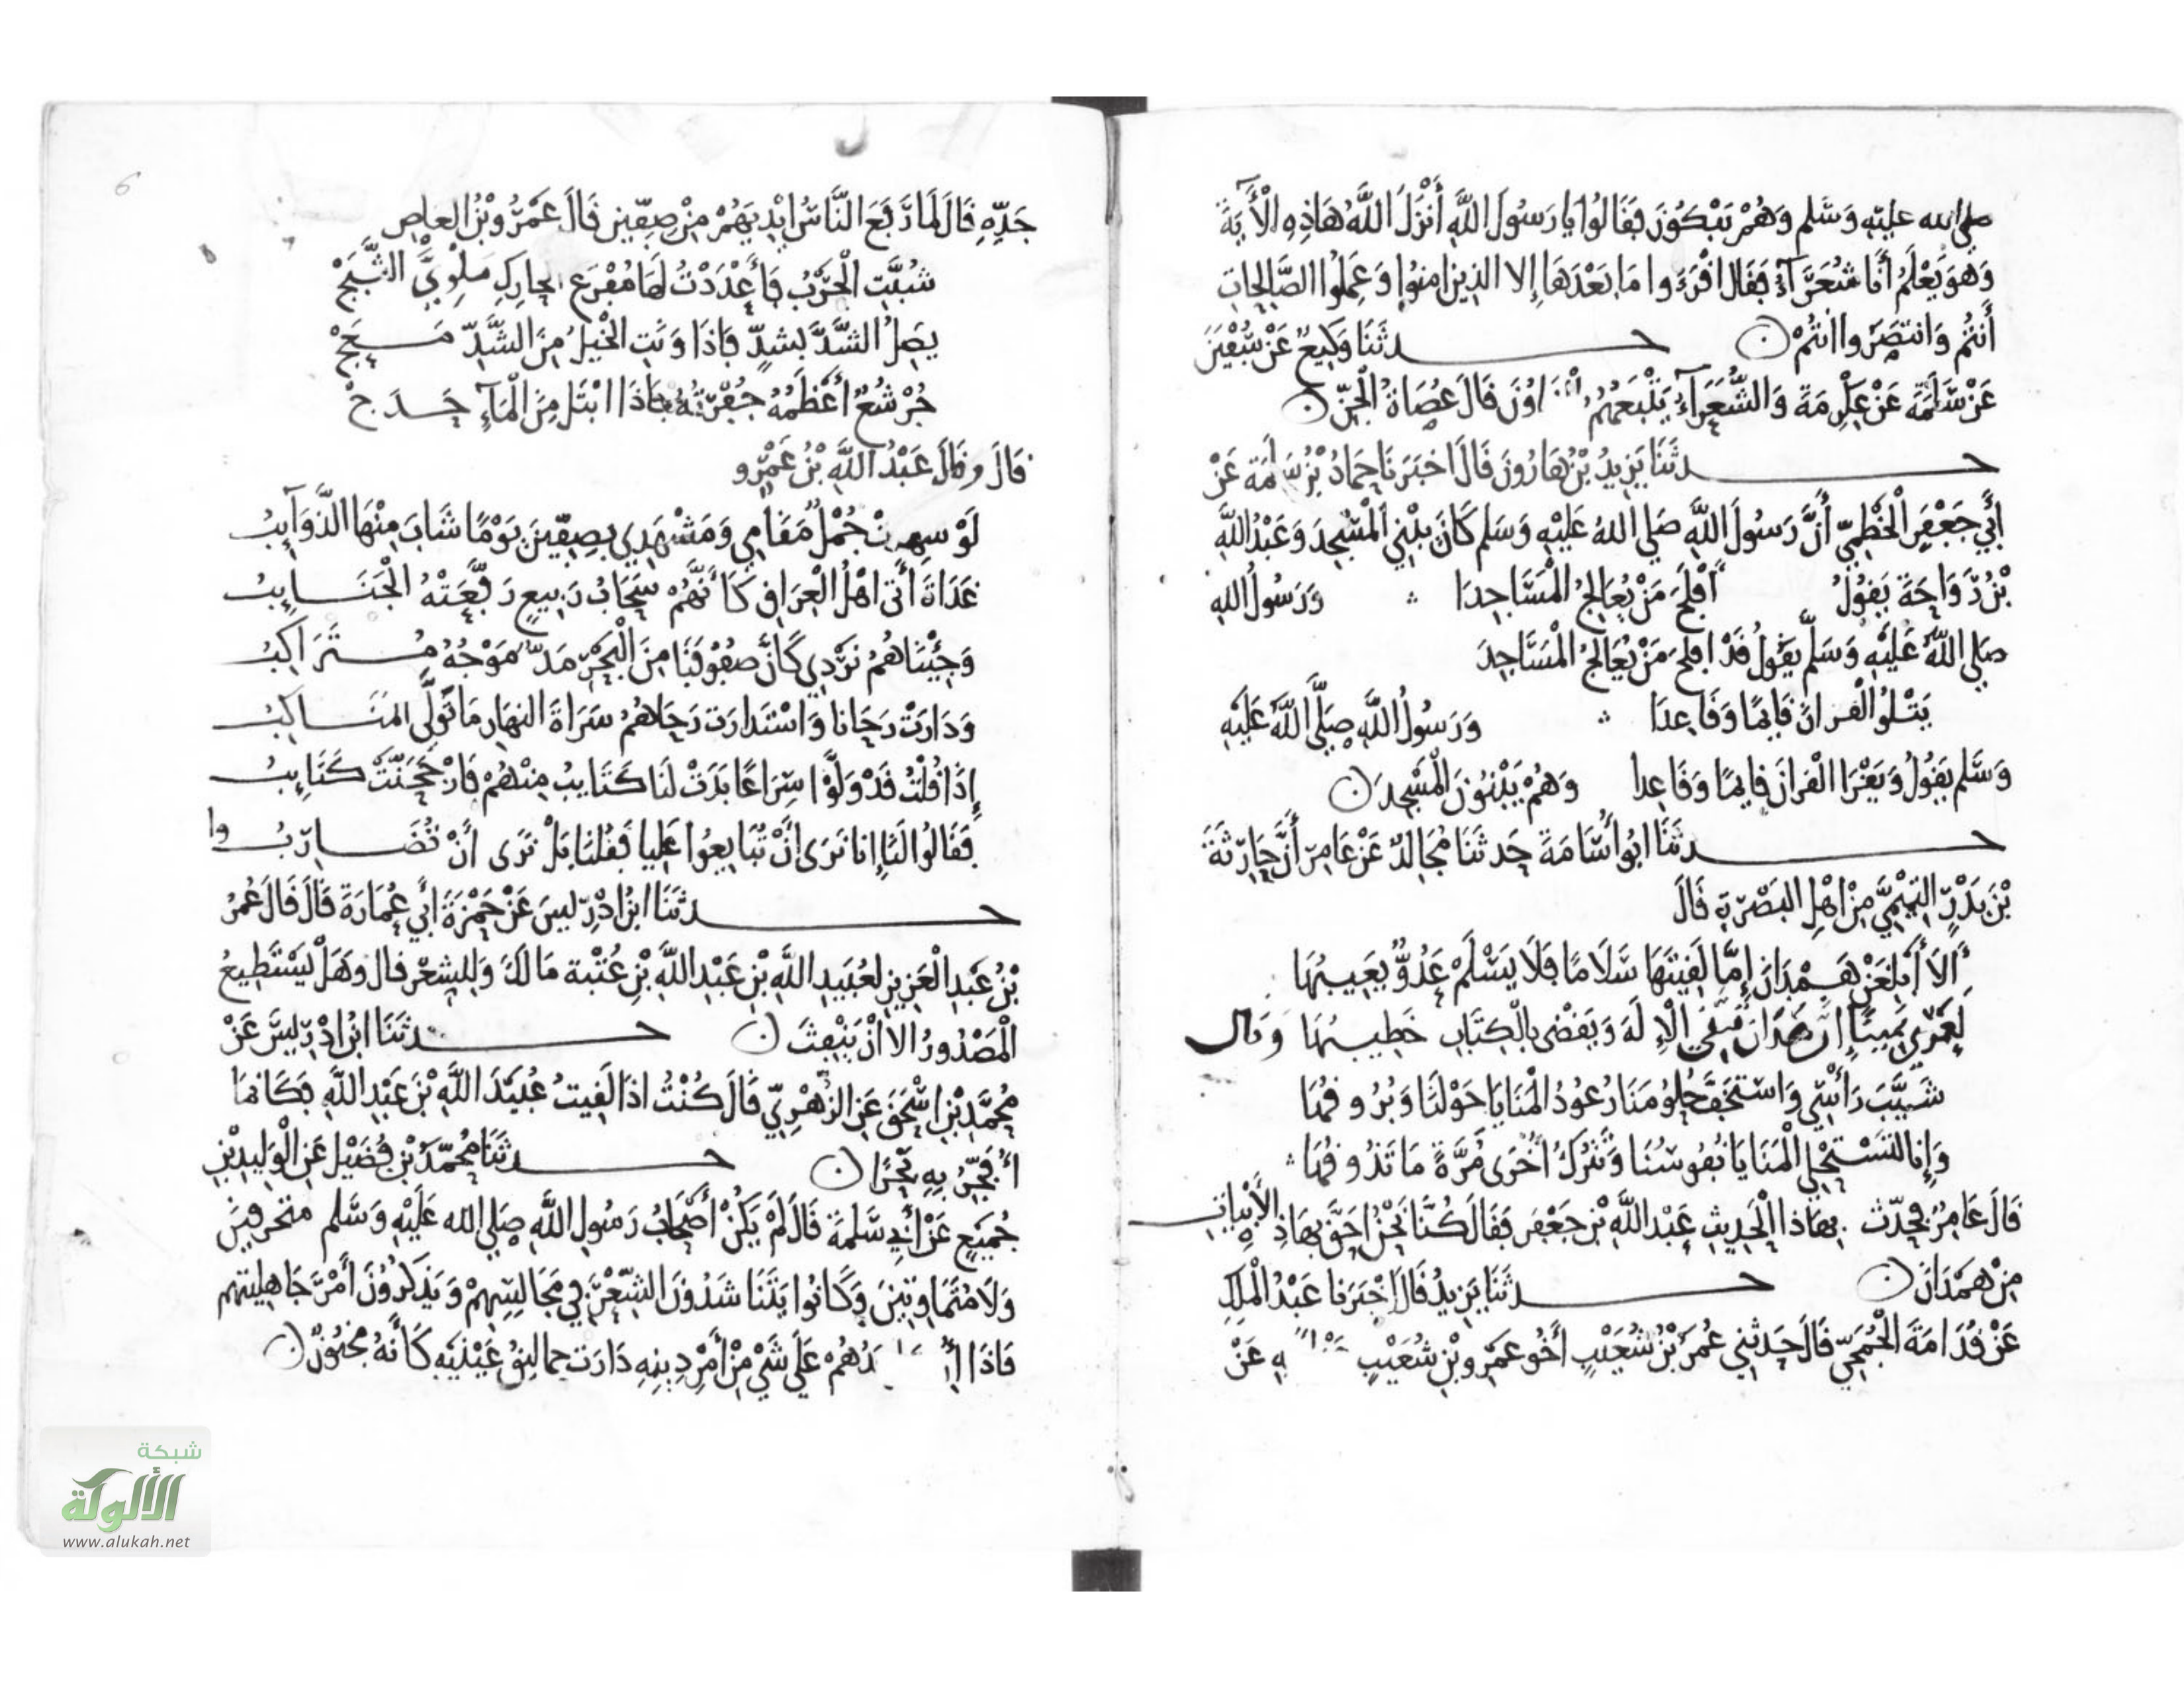 صلى الله عليه وسلم وَهُمْ يَبْكُونَ فَقَالُوا يا رَسُولَ اللَّهِ أَنْزَلَ اللَّهُ هَاذِهِ الْأَيَةَ
وَهوَ يَعْلَمُ أَنَّا شُعَرَآءُ فَقَالَ اقْرَءُوا مَا بَعْدَهَا إِلا الذِينَ امنوا وَعَمِلُوا الصَّالِحَاتِ
أَنتُم وَانتَصَرُوا أنتُمْ ۞ حدثَنَا وَكِيعٌ عَنْ سُفْيَنَ
عَنْ سَلَمَةَ عَنْ عِكْرِمَةَ وَالشُّعَرَآءُ يَتْبَعُهُمُ اوُنَ قَالَ عُصَاةُ الْجِنِّ ۞
حدثَنَا يَزِيدُ بْنُ هَارُونَ قَالَ اخبَرَنَا حَمادُ بْنُ سَلَمَةَ عَنْ
أَبِي جَعْفَرٍ الْخَطْمِيِّ أَنَّ رَسُولَ اللَّهِ صَلى اللهُ عَلَيْهِ وَسَلم كَانَ يبْنِي الْمَسْجِدَ وَعَبْدُ اللَّهِ
بْنُ رَوَاحَةَ يَقُولُ أَفْلَحَ مَنْ يُعَالِجُ الْمَسَاجِدَا ∴ وَرَسُولُ اللهِ
صَلى اللَّهُ عَلَيْهِ وَسَلَّم يَقُولُ قَدْ افلَحَ مَنْ يُعَالِجُ الْمَسَاجِدَ
يَتْلُو الْقرانَ قَايِمًا وَقَاعِدَا ∴ وَرَسُولُ اللَّهِ صَلَّى اللَّهُ عَلَيْهِ
وَسَلم يَقُولُ وَيَقْرَا الْقرانَ قَايمًا وَقَاعِدا وَهُمْ يَبْنُونَ الْمَسْجِدَ ۞
حدثَنَا ابُو أُسَامَةَ حَدثَنَا مُجَالِدٌ عَنْ عَامِرٍ أَنَّ حَارِثَةَ
بْنَ بَدْرٍ التَّيْمِيَّ مِنْ اهْلِ البَصْرَةِ قَالَ
أَلَا أَبْلِغَنْ هَمْدَانَ إِمَّا لَقِيتَهَا سَلَامًا فَلَا يَسْلَمْ عَدُوٌّ يَعِيبُهَا
لَعَمْرِي يَمِينًا إِنَّ هَمْدَانَ تَتَّقِي الْإِلَهَ وَيَقْضِى بِالْكِتَابِ خَطِيبُهَا وَقال
شَيَّبَ رَأْسِي وَاسْتَخَفَّ حُلُومَنَا رُعُودُ الْمَنَايَا حَوْلَنَا وَبُرُوقُهَا
وَإِنا لتَسْتَحْلِي الْمَنَايَا نُفُوسُنَا وَنَتْرُكُ أُخْرَى مُرَّةً مَا نَذُوقُهَا ∴
قَالَ عَامِرٌ فحدّث بهاذا الْحَدِيثِ عَبْد اللَّهِ بْن جَعْفَرٍ فَقَالَ كُنَّا نَحْنُ احَقَّ بهَاذِهِ الْأَبْيَاتِ
مِنْ همْدَانَ ۞ حدثَنَا يَزِيدُ قَالَ اخْبَرَنا عَبْدُ الْمَلِكِ
عَنْ قُدَامَةَ الْجُمَحِيِّ قَالَ حَدثَنِي عُمَرُ بْنُ شُعَيْبٍ أَخُو عَمْرِو بْنِ شُعَيْبٍ عَنْ
جَدِّهِ قَالَ لَمَا رَفَعَ النَّاسُ ايْدِيَهُمْ مِنْ صِفِّينَ قَالَ عَمْرُو بْنُ العاص
شُبَّتِ الْحَرْبُ فَأَعْدَدْتُ لَهَا مُفْرَعَ الحارِكِ مَلْوِيَّ الثَّبَجْ
يصِلُ الشَّدَّ بشدٍّ فَإذَا وَنَتِ الخيلُ مِنَ الشَّدِّ مَعَجْ
جُرْشُعٌ أَعْظَمُهُ جُفْرَتُهُ فَإذَا ابْتَل مِنَ الْمَآءِ حَدَجْ
قَالَ وقَالَ عَبْدُ اللَّهِ بْنُ عَمْرٍو
لَوْ شهدت جُمْلُ مَقَامِي وَمَشْهَدِي بصِفِّينَ يَوْمًا شَابَ مِنْهَا الذَّوَآيِبُ
غَدَاةَ أَتَى اهْلُ الْعِرَاقِ كَأَنَّهُمْ سَحَابُ رَبِيعٍ رَفَّعَتْهُ الْجَنَايِبُ
وَجِئْنَاهُمُ نَرْدِي كَأَنَّ صفُوفَنَا مِنَ الْبَحْرِ مَدٌّ مَوْجُهُ مُتَرَاكِبُ
وَدَارَتْ رَحَانا وَاسْتَدارَت رَحَاهُمُ سَرَاةَ النهَارِ مَا تَوَلَّى المنَاكِبُ
إِذَا قُلْتُ قَدْ وَلَّوْا سِرَاعًا بَدَتْ لَنَا كَتَايبُ مِنْهُمْ فَارْجَحَنَّتْ كَتَايِبُ
فَقَالُوا لَنَا إِنا نَرَى أَنْ تُبَايِعُوا عَلِيا فَقُلنَا بَلْ نَرَى أَنْ نُضَارِبُوا
حدثَنَا ابنُ ادْرِيسَ عَنْ حَمْزَةَ أَبِي عُمَارَةَ قَالَ قَالَ عُمَرُ
بْنُ عَبْدِ الْعَزِيزِ لعُبَيْدِ اللَّهِ بْنِ عَبْدِ اللَّهِ بْنِ عُتْبة مَا لَكَ وَلِلشِعْر قال وَهَلْ يَسْتَطِيعُ
الْمَصْدُورُ الا أَنْ يَنْفِثَ ۞ حدثَنَا ابْنُ ادْرِيسَ عَنْ
مُحَمَّدِ بْنِ اسْحَقَ عَنِ الزُّهْرِيِّ قَالَ كُنْتُ اذَا لَقِيتُ عُبَيْدَ اللَّهِ بْنَ عَبْدِ اللَّهِ فَكَأنمَا
أُفَجِّرُ بِهِ بَحْرًا ۞ حدثَنَا مُحَمَّدُ بْنُ فُضَيْلٍ عَنِ الْوَلِيدِ بْنِ
جُمَيْعٍ عَنْ أَبِي سَلمَةَ قَالَ لَمْ يَكُنْ أَصْحَابُ رَسُولِ اللَّهِ صَلى الله عَلَيْهِ وَسَّلم متحرفِينَ
وَلَا مُتَمَاوِتِينَ وَكَانُوا يَتَنَاشَدُونَ الشِّعْرَ فِي مَجَالِسِهِمْ وَيَذكُرُونَ أَمْرَ جَاهِليتهِم
فَاذَا أُ دُهُمْ عَلَى شَيْءٍ مِنْ أَمْرِ دِينِهِ دَارَت حمالِيقُ عَيْنَيْهِ كَأَنَّهُ مَجْنُونٌ ۞
شبكة
الألوكة
www.alukah.net